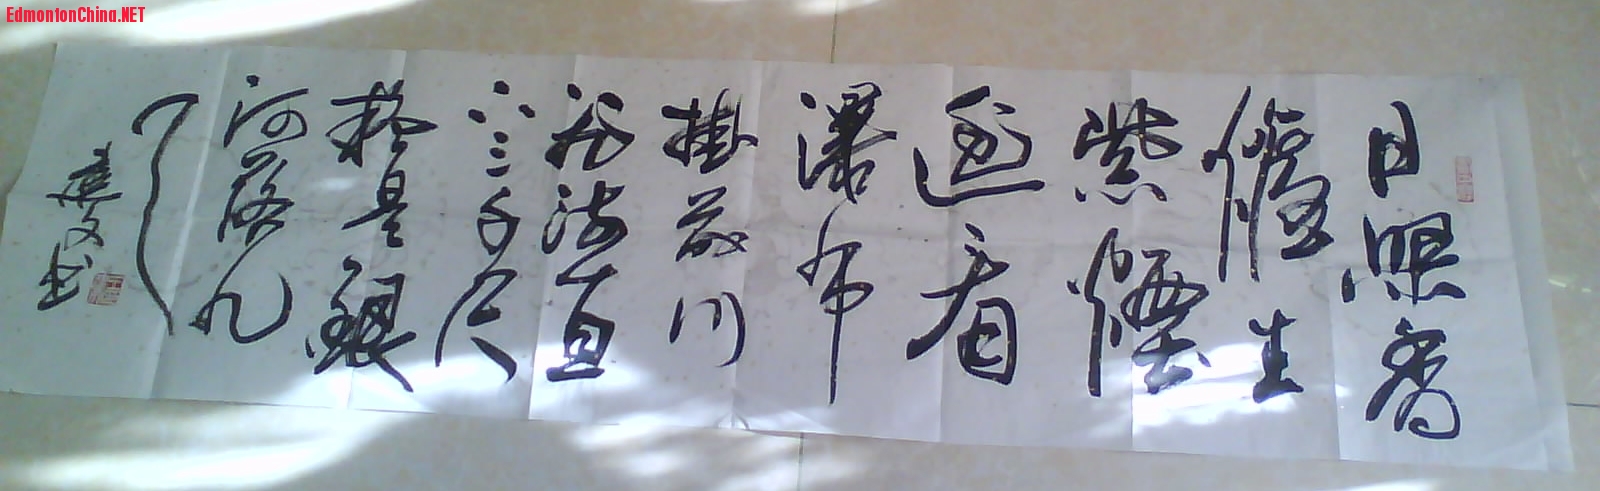 EdmontonChina.NET
日照香
爐生
紫煙
遥看
瀑布
掛前川
飛流直
下三千尺
疑是銀
河落九
天
建文书